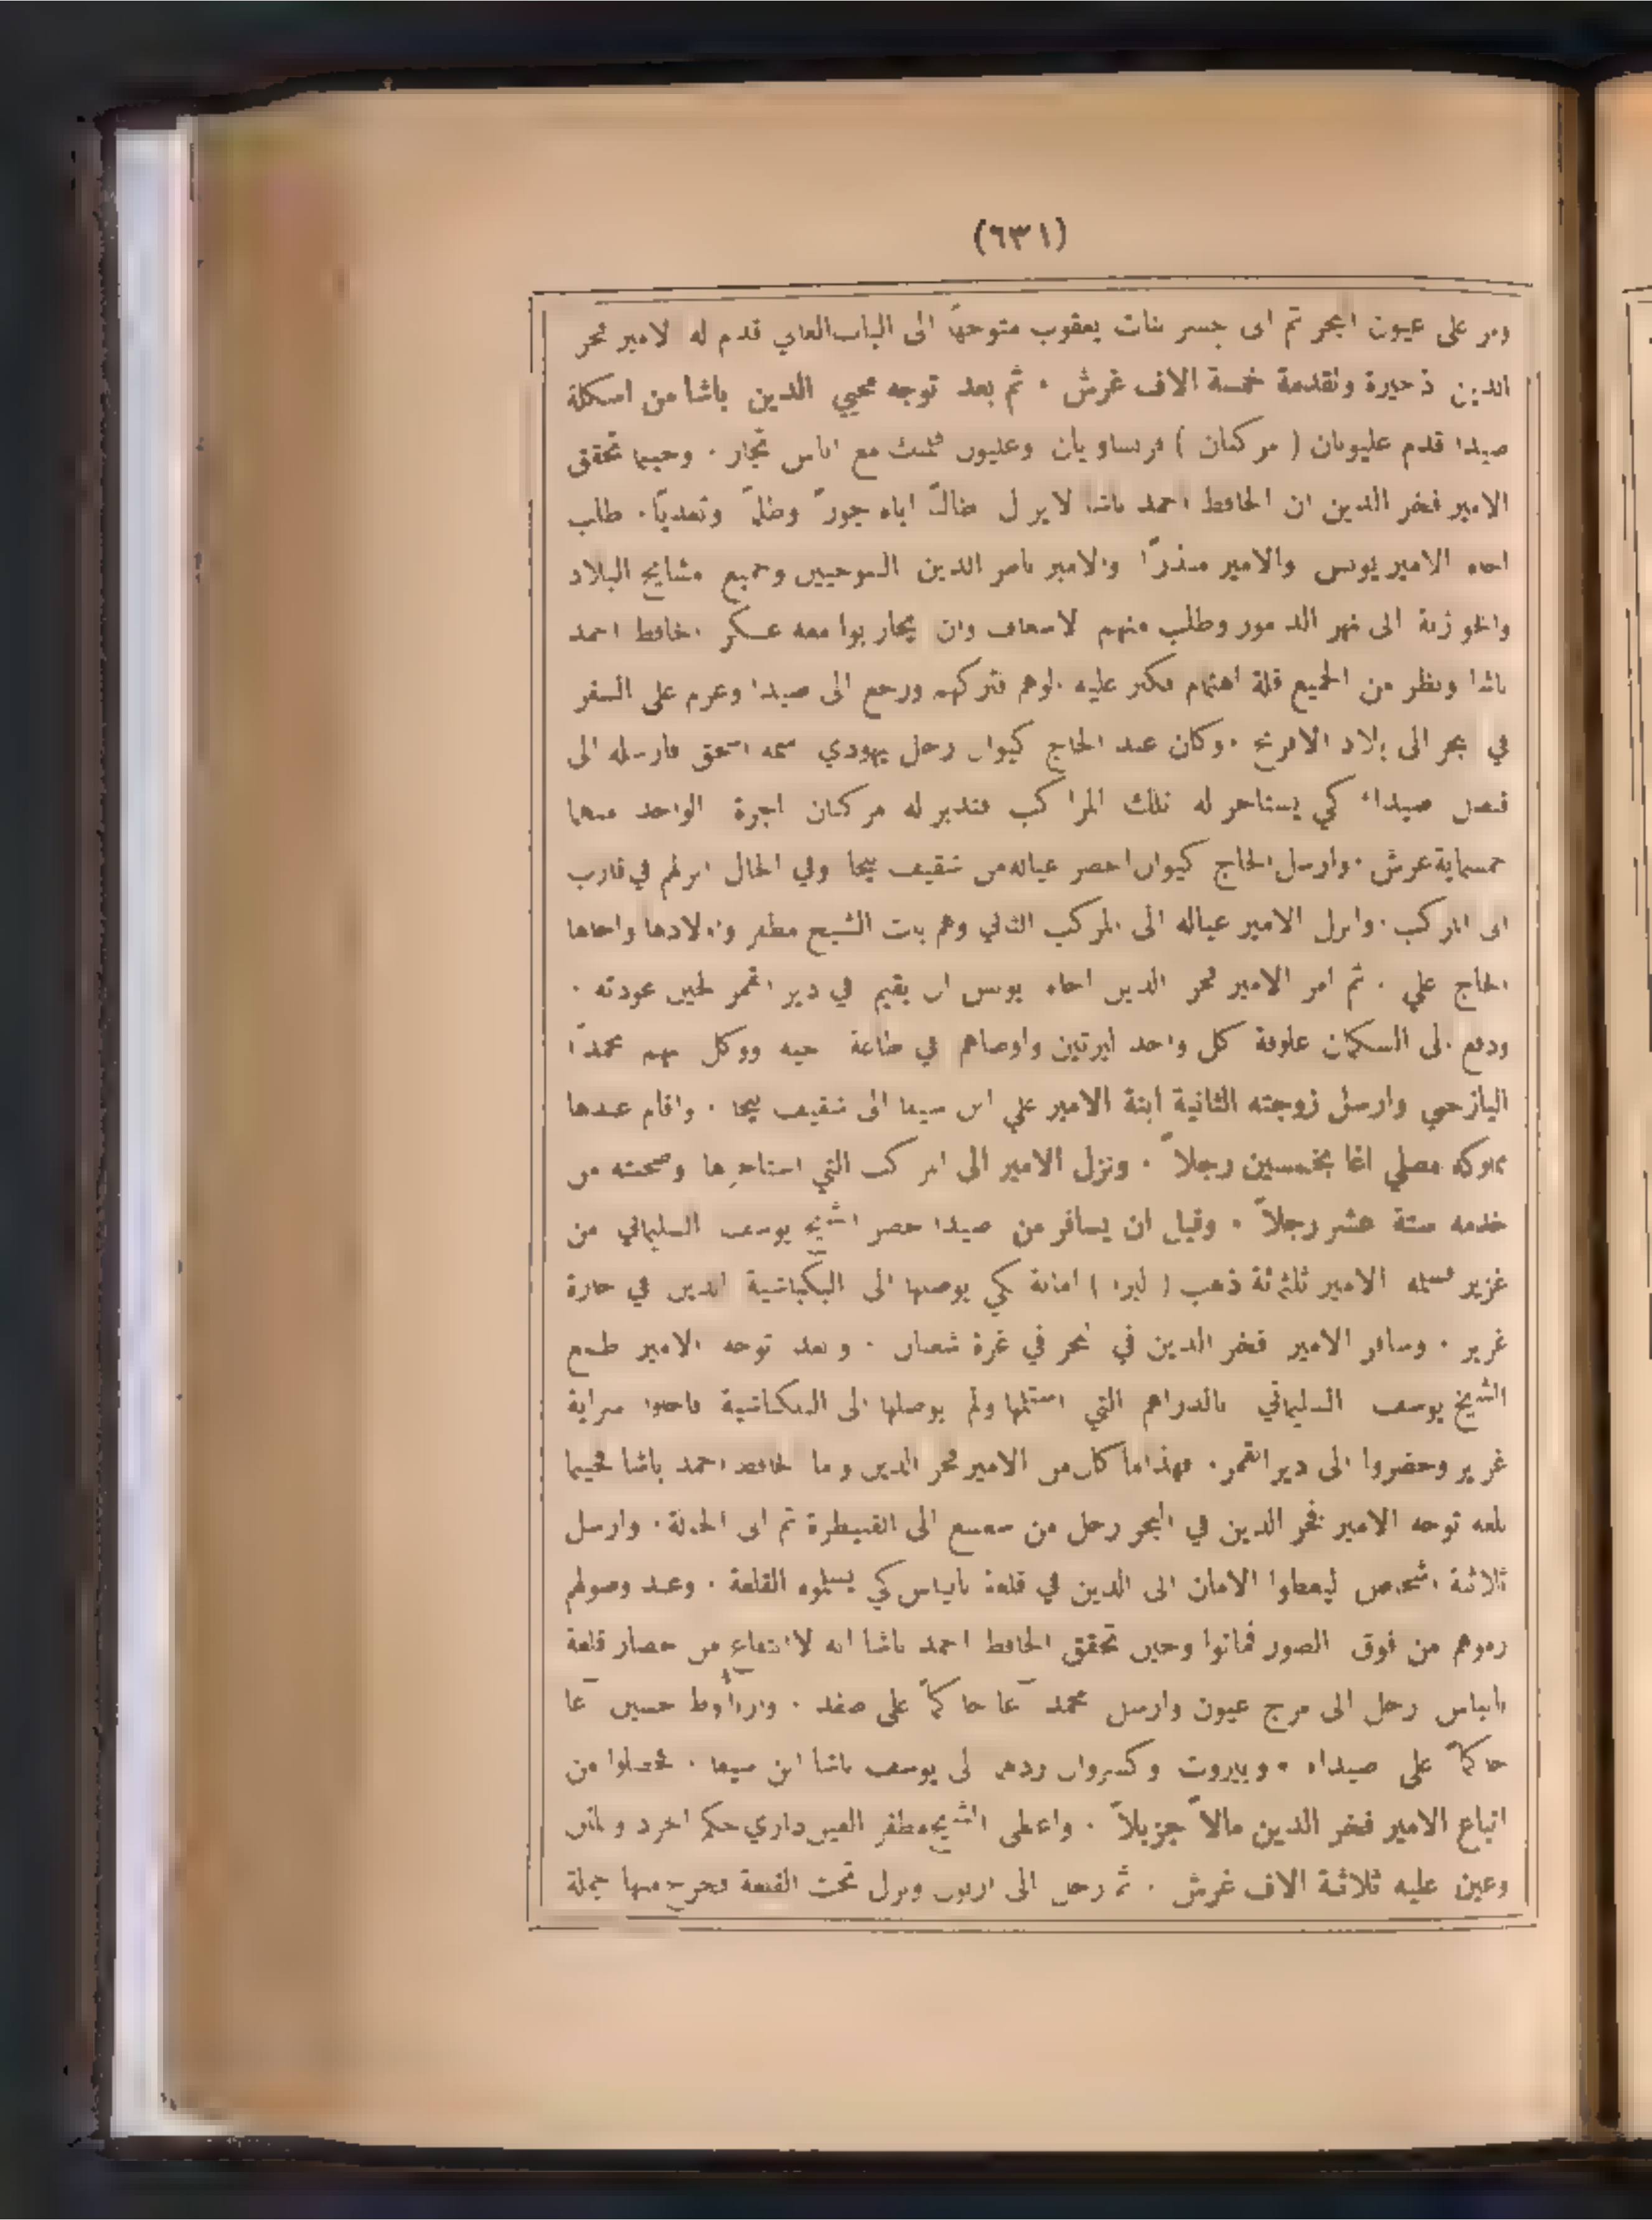 (٦٣١)
ومر على عيون البحر ثم الى جسر بنات يعقوب متوجهاً الى الباب العالي قدم له الامير فخر
الدين ذخيرة وتقدمة خمسة الاف غرش . ثم بعد توجه محيي الدين باشا من اسكلة
صيدا قدم عليونان ( مركبان ) فرنساويان وعليون فلمنك مع اناس تجار . وحينما تحقق
الامير فخر الدين ان الحافظ احمد باشا لا يزل طالباً اياه جوراً وظلماً وتعدياً . طلب
اخاه الامير يونس والامير منذراً والامير ناصر الدين التنوخيين وجميع مشايخ البلاد
والخوازنة الى نهر الدامور وطلب منهم الاسعاف وان يحاربوا معه عسكر الحافظ احمد
باشا ونظر من الجميع قلة اهتمام فكثر عليه الوهم فتركهم ورجع الى صيدا وعزم على السفر
في البحر الى بلاد الافرنج . وكان عند الحاج كيوان رجل يهودي اسمه اسحق فارسله الى
قنصل صيداء كي يستاجر له تلك المراكب فتدبر له مركبان اجرة الواحد منهما
خمسماية غرش . وارسل الحاج كيوان احضر عياله من شقيف نيحا وفي الحال انزلهم في قارب
الى المركب . وانزل الامير عياله الى المركب الثاني وهم بنت الشيخ مظفر واولادها واخاها
الحاج علي . ثم امر الامير فخر الدين اخاه يونس ان يقيم في دير القمر لحين عودته .
ودفع الى السكمان علوفة كل واحد ليرتين واوصاهم في طاعة اخيه ووكل بهم محمداً
اليازجي وارسل زوجته الثانية ابنة الامير علي ابن سيفا الى شقيف نيحا . واقام عندها
مملوكه مصلي اغا بخمسين رجلاً . ونزل الامير الى المركب التي استاجرها وصحبته من
خدمه ستة عشر رجلاً . وقبل ان يسافر من صيدا حضر الشيخ يوسف السليماني من
غزير فسلمه الامير ثلثمئة ذهب ( ليرا ) امانة كي يوصلها الى البلكباشية الذين في حارة
غزير . وسافر الامير فخر الدين في البحر في غرة شعبان . وبعد توجه الامير طمع
الشيخ يوسف السليماني بالدراهم التي استلمها ولم يوصلها الى البلكباشية فاخلوا سراية
غزير وحضروا الى دير القمر . فهذا ما كان من الامير فخر الدين واما الحافظ احمد باشا فحينما
بلغه توجه الامير فخر الدين في البحر رحل من سعسع الى القنيطرة ثم الى الحولة . وارسل
ثلاثة اشخاص ليعطوا الامان الى الذين في قلعة بانياس كي يسلموه القلعة . وعند وصولهم
رموهم من فوق الصور فماتوا وحين تحقق الحافظ احمد باشا انه لا انتفاع من حصار قلعة
بانياس رحل الى مرج عيون وارسل محمد آغا حاكماً على صفد . وارناؤوط حسين آغا
حاكماً على صيداء . وبيروت وكسروان ردهم الى يوسف باشا ابن سيفا . فحصلوا من
اتباع الامير فخر الدين مالاً جزيلاً . واعطى الشيخ مظفر العين داري حكم الجرد والمتن
وعين عليه ثلاثة الاف غرش . ثم رحل الى ارنون ونزل تحت القلعة فخرج منها جملة